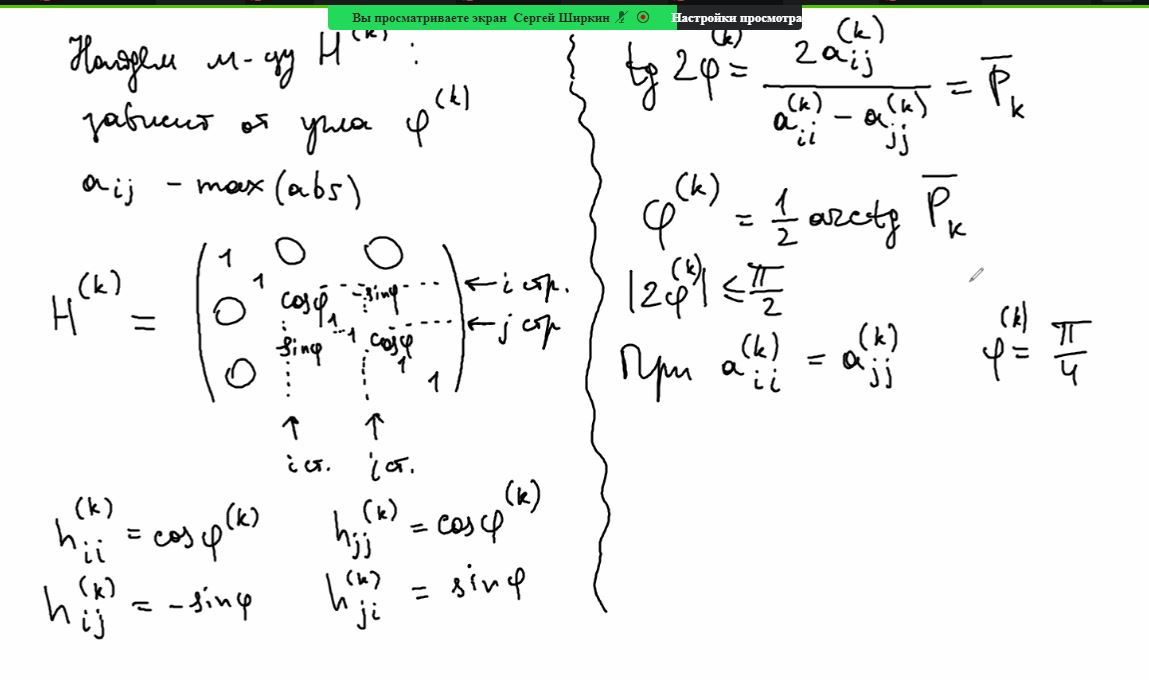 Вы просматриваете экран Сергей Ширкин
Настройки просмотра
Найдем м-цу H^(k) :
зависит от угла φ^(k)
a_ij - max (abs)
H^(k) =
1 0 0
1
0 cosφ -sinφ ← i стр.
1 ... 1
sinφ cosφ ← j стр
0 1 1
↑ ↑
i ст. j ст.
h_ii^(k) = cosφ^(k) h_jj^(k) = cosφ^(k)
h_ij^(k) = -sinφ h_ji^(k) = sinφ
tg 2φ^(k) = 2a_ij^(k) / (a_ii^(k) - a_jj^(k)) = P̅_k
φ^(k) = 1/2 arctg P̅_k
|2φ^(k)| ≤ π/2
При a_ii^(k) = a_jj^(k) φ^(k) = π/4